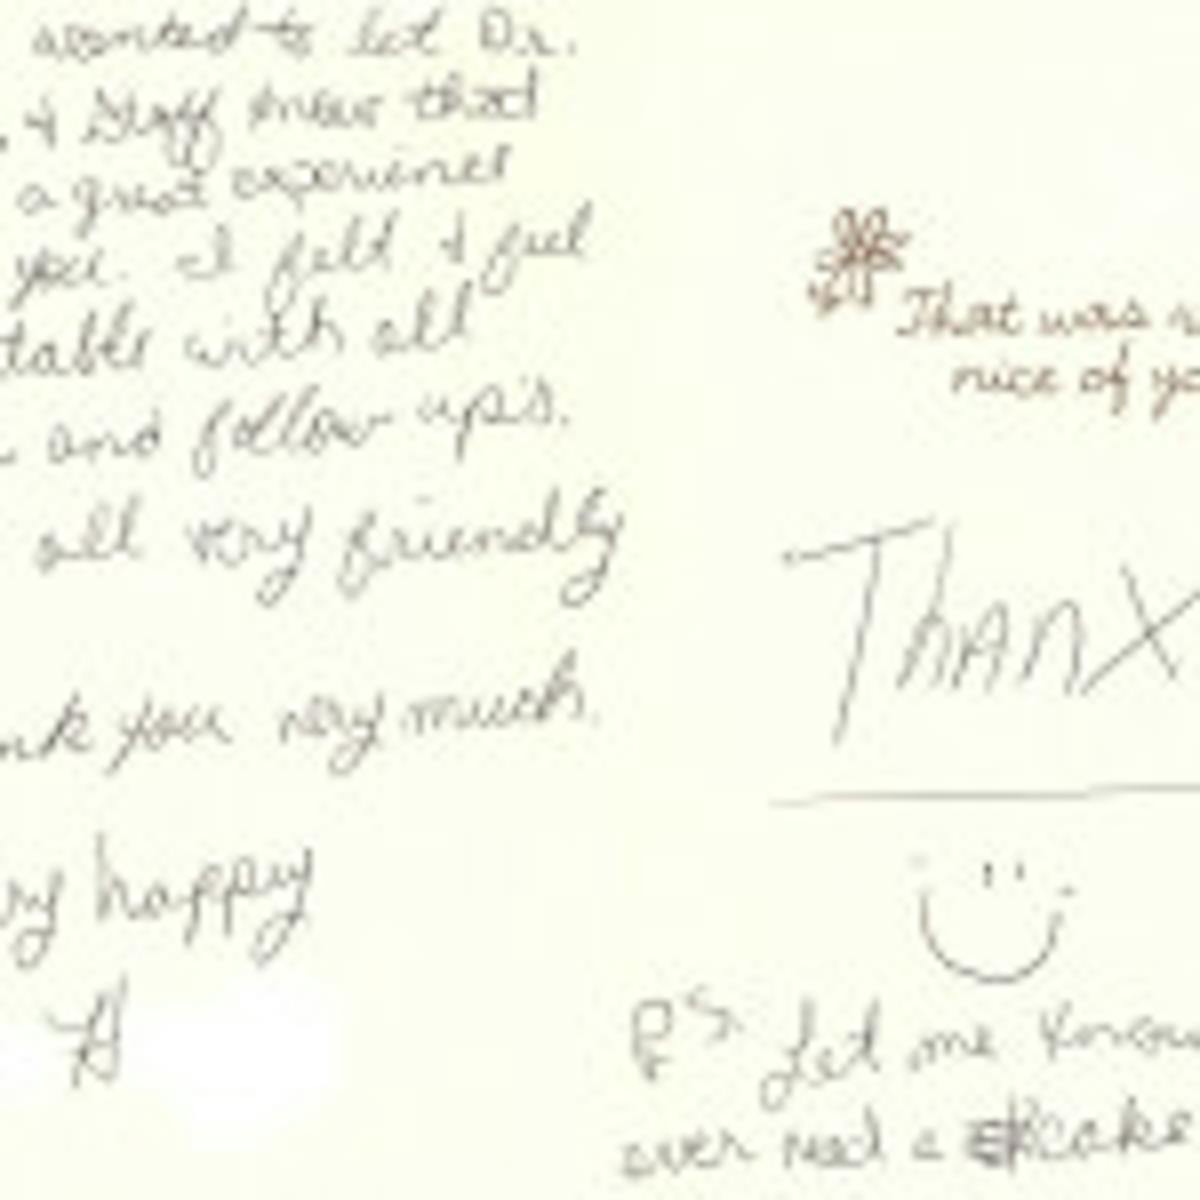 wanted to let Dr.
& Staff know that
a great experience
you. I felt & feel
table with all
and follow up's.
all very friendly
nk you very much.
ry happy
H
That was v
nice of yo
ThanX
PS Let me know
ever need a cake